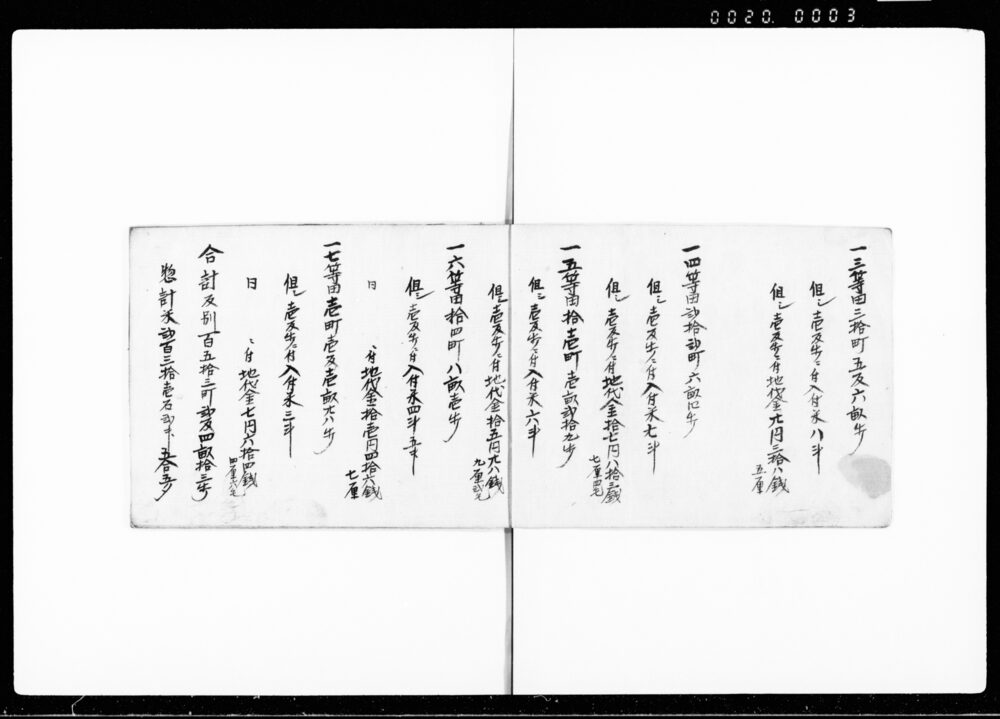 0020. 0003
一三等田三拾町五反六畝歩
但シ壱反歩ニ付入付米八斗
但シ壱反歩ニ付地代金廿円三拾八銭
五厘
一四等田弐拾弐町六畝四歩
但シ壱反歩ニ付入付米七斗
但シ壱反歩ニ付地代金拾七円八拾三銭
七厘四毛
一五等田拾壱町壱畝弐拾九歩
但シ壱反歩ニ付入付米六斗
但シ壱反歩ニ付地代金拾五円廿八銭
九厘弐毛
一六等田拾四町八畝壱歩
但シ壱反歩ニ付入付米四斗五升
同 〻付地代金拾壱円四拾六銭
七厘
一七等田壱町壱反壱畝廿八歩
但シ壱反歩ニ付入付米三斗
同 〻付地代金七円六拾四銭
四厘弐毛
合計反別百五拾三町弐反四畝拾三歩
惣計米弐百三拾壱石
五合五勺